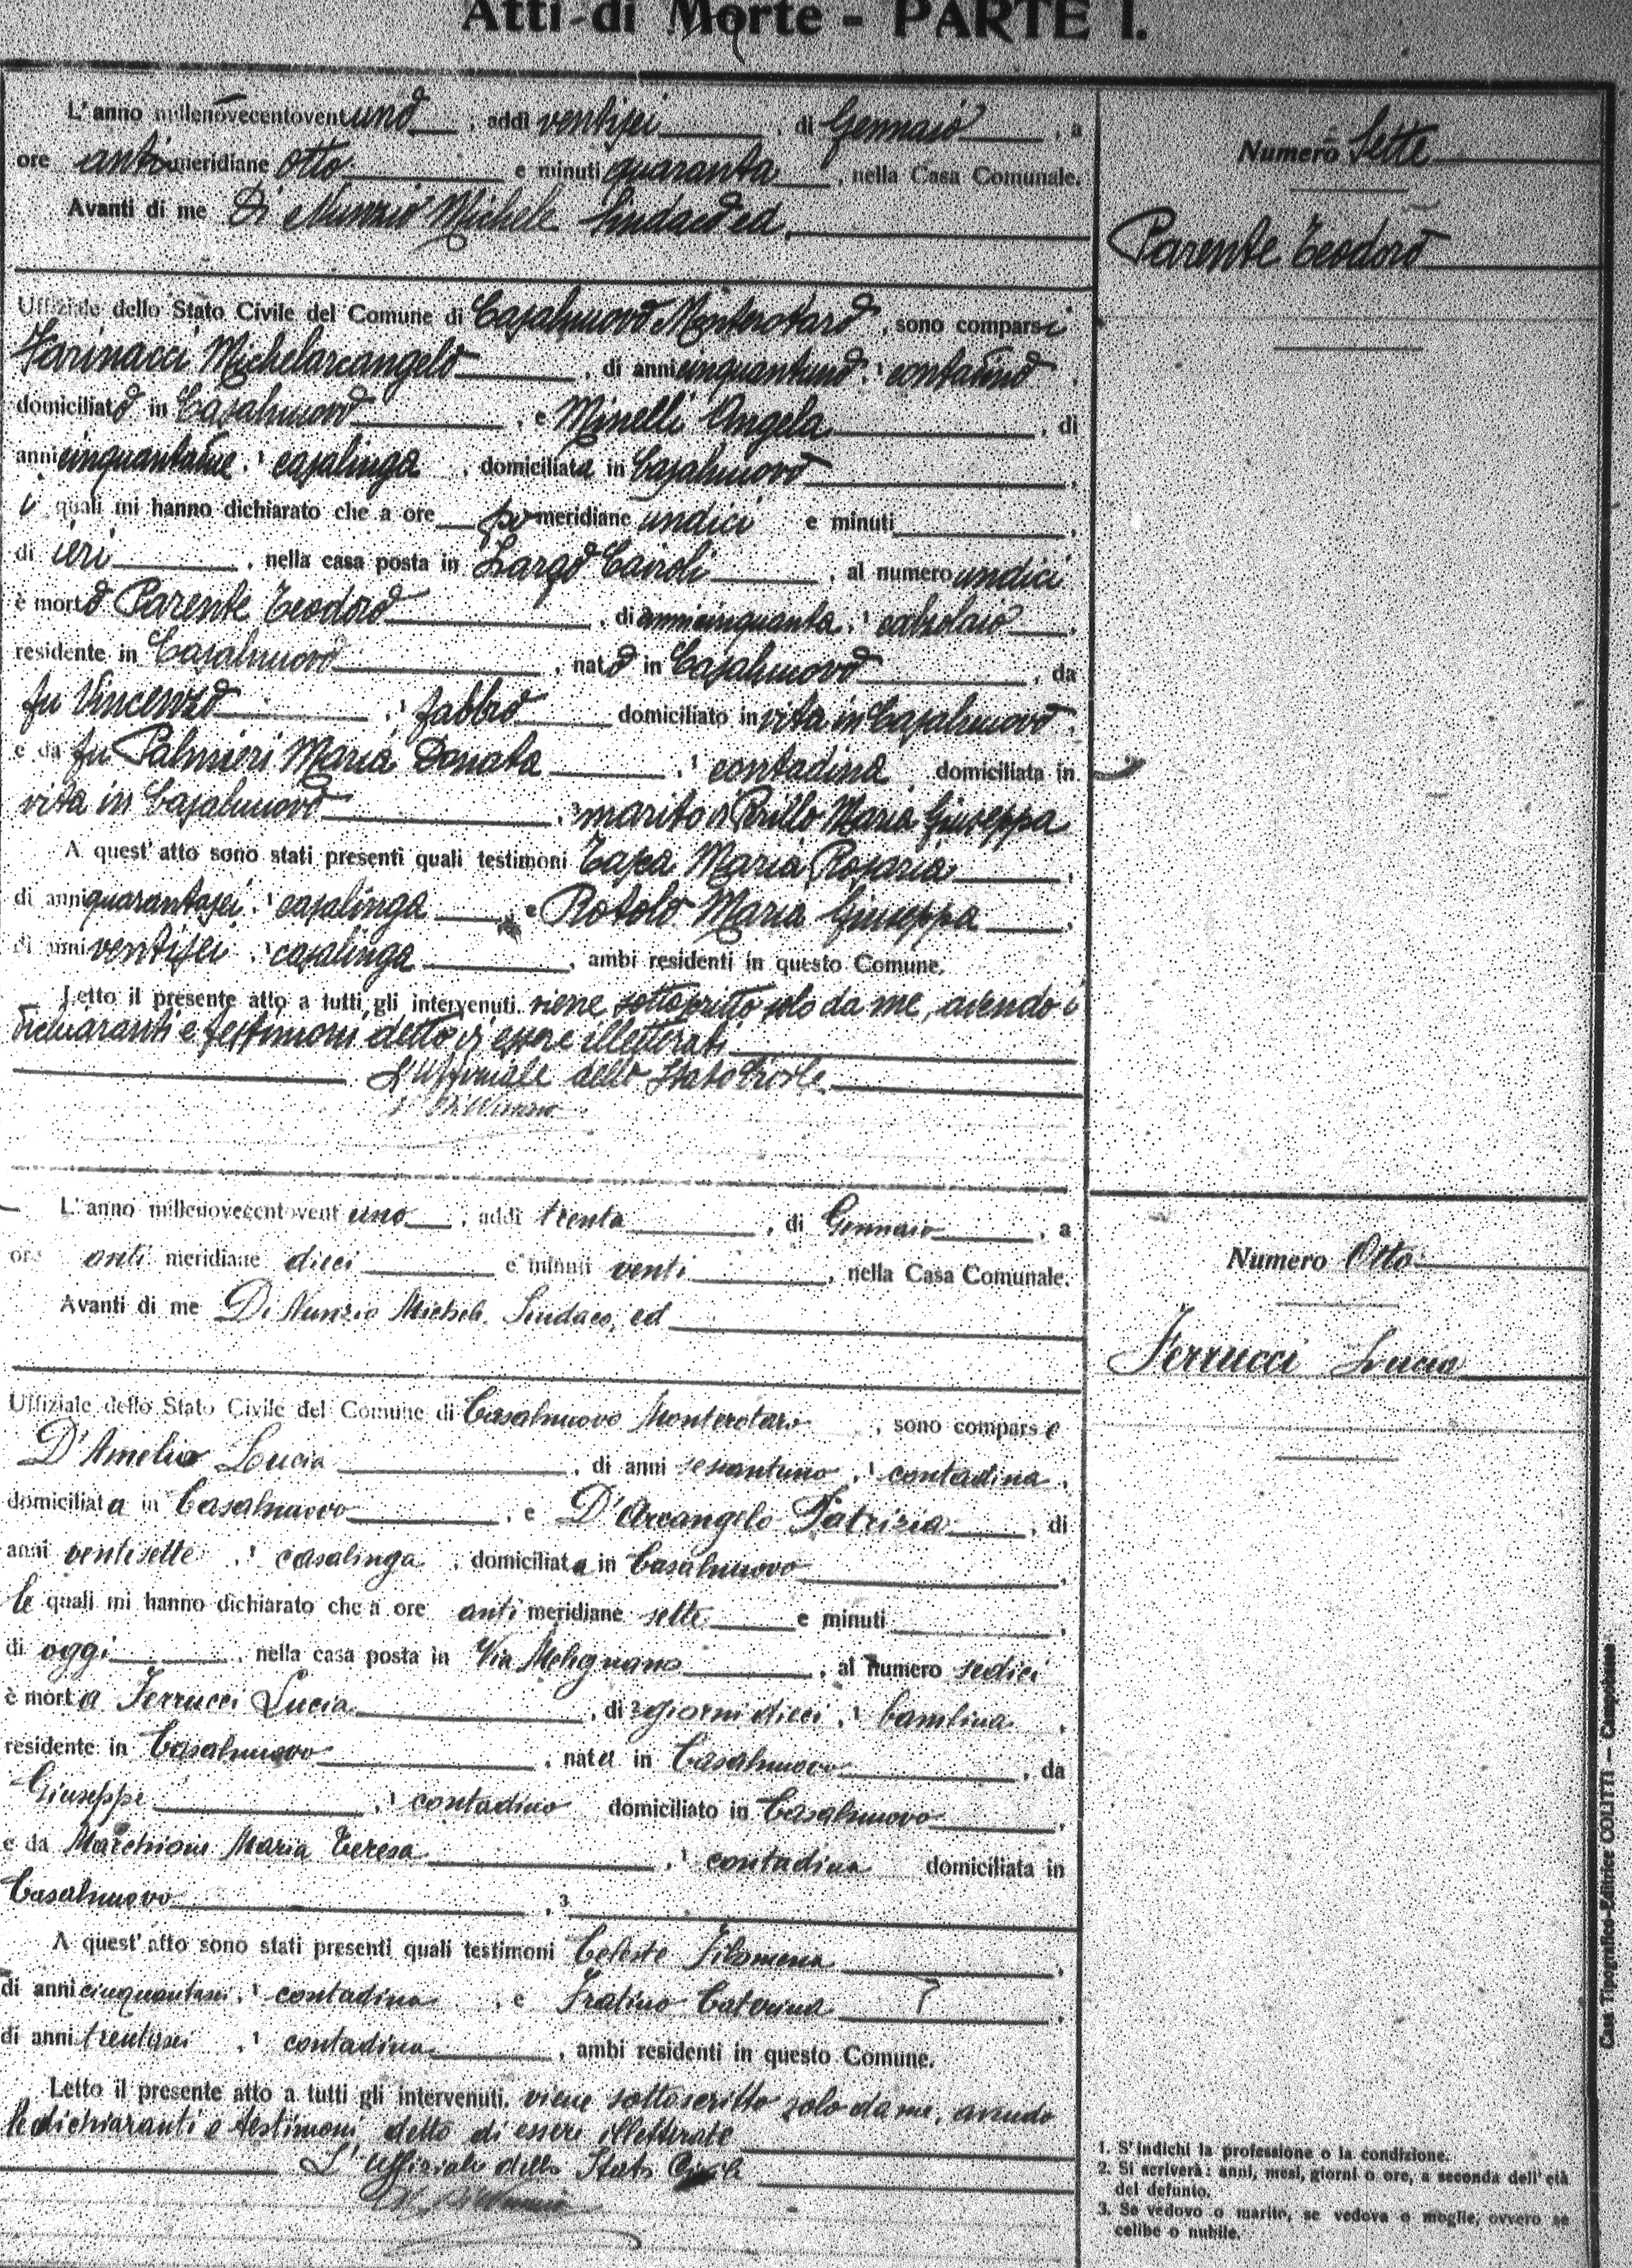 Atti di Morte - PARTE I.
L'anno millenovecentoventuno, addì ventisei, di Gennaio, a
ore antimeridiane otto e minuti quaranta, nella Casa Comunale.
Avanti di me Di Nunzio Michele Sindaco ed
Uffiziale dello Stato Civile del Comune di Casalnuovo Monterotaro, sono comparsi
Farinacci Michelarcangelo, di anni cinquantuno, 1 contadino,
domiciliato in Casalnuovo, e Minelli Angela, di
anni cinquantadue, 1 casalinga, domiciliata in Casalnuovo,
i quali mi hanno dichiarato che a ore pomeridiane undici e minuti,
di ieri, nella casa posta in Largo Cairoli, al numero undici
è morto Parente Teodoro, di anni cinquanta, 1 calzolaio,
residente in Casalnuovo, nato in Casalnuovo, da
fu Vincenzo, 1 fabbro domiciliato in vita in Casalnuovo,
e da fu Palmieri Maria Donata, 1 contadina domiciliata in
vita in Casalnuovo, 3 marito di Perillo Maria Giuseppa
A quest'atto sono stati presenti quali testimoni Maria Rosaria,
di anni quarantasei, 1 casalinga, e Rotolo Maria Giuseppa,
di anni ventisei, 1 casalinga, ambi residenti in questo Comune.
Letto il presente atto a tutti gli intervenuti, viene sottoscritto solo da me, avendo i
dichiaranti e testimoni detto di essere illetterati
L'Uffiziale dello Stato Civile
Di Nunzio
Numero Sette
Parente Teodoro
L'anno millenovecentoventuno, addì trenta, di Gennaio, a
ore antimeridiane dieci e minuti venti, nella Casa Comunale.
Avanti di me Di Nunzio Michele Sindaco, ed
Uffiziale dello Stato Civile del Comune di Casalnuovo Monterotaro, sono comparse
D'Amelio Lucia, di anni sessantuno, 1 contadina,
domiciliata in Casalnuovo, e D'Arcangelo Patrizia, di
anni ventisette, 1 casalinga, domiciliata in Casalnuovo,
le quali mi hanno dichiarato che a ore antimeridiane sette e minuti,
di oggi, nella casa posta in Via Melignano, al numero sedici
è morta Ferrucci Lucia, di 2 giorni dieci, 1 bambina,
residente in Casalnuovo, nata in Casalnuovo, da
Giuseppe, 1 contadino domiciliato in Casalnuovo,
e da Marchione Maria Teresa, 1 contadina domiciliata in
Casalnuovo, 3
A quest'atto sono stati presenti quali testimoni Celeste Filomena,
di anni cinquantasei, 1 contadina, e Fratino Caterina,
di anni trentasei, 1 contadina, ambi residenti in questo Comune.
Letto il presente atto a tutti gli intervenuti, viene sottoscritto solo da me, avendo
le dichiaranti e testimoni detto di essere illetterate
L'Uffiziale dello Stato Civile
M. Di Nunzio
Numero Otto
Ferrucci Lucia
1. S'indichi la professione o la condizione.
2. Si scriverà: anni, mesi, giorni o ore, a seconda dell'età
del defunto.
3. Se vedovo o marito, se vedova o moglie, ovvero se
celibe o nubile.
Casa Tipografico-Editrice COLITTI - Campobasso